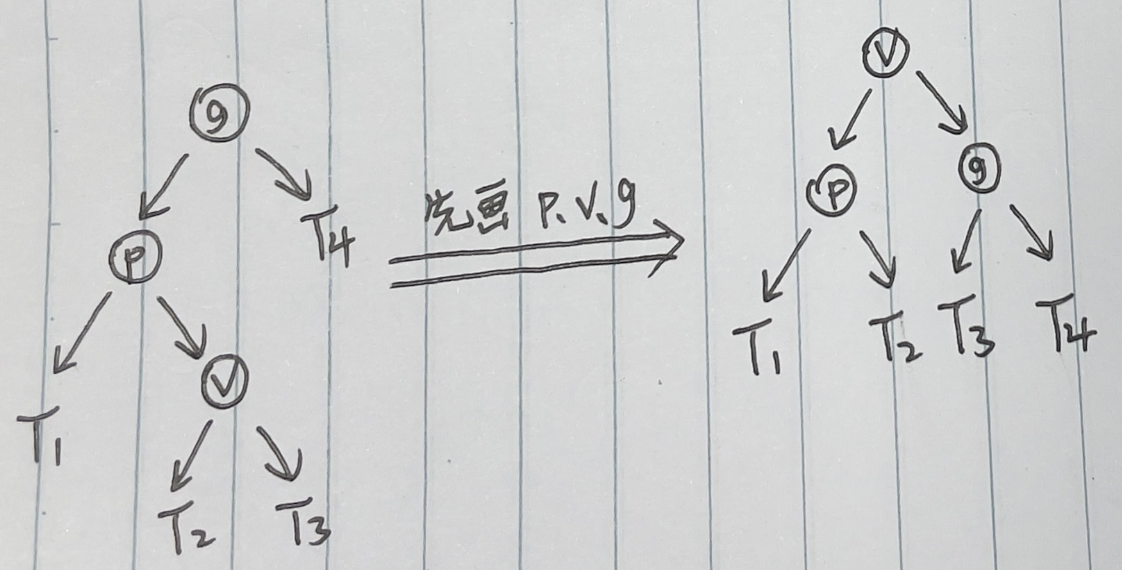 g
P
T4
T1
V
T2 T3
先画 P、V、g
V
P g
T1 T2 T3 T4